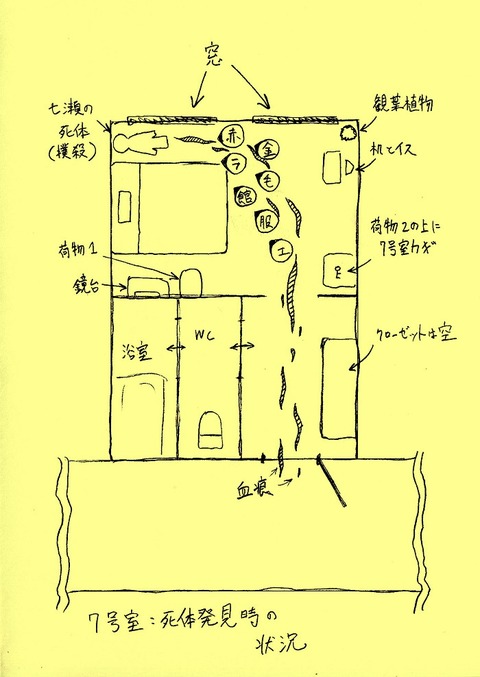 窓
七瀬の
死体
(撲殺)
観葉植物
机とイス
赤
金
ラ
毛
館
服
エ
荷物1
鏡台
荷物2の上に
7号室カギ
浴室
WC
クローゼットは空
血痕
7号室:死体発見時の
状況